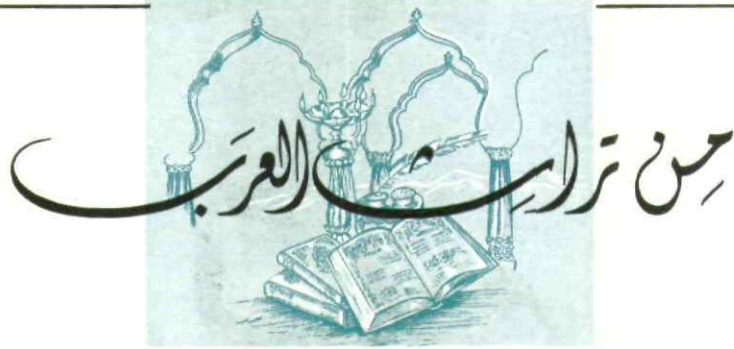 مِن تراثِ العَرَب